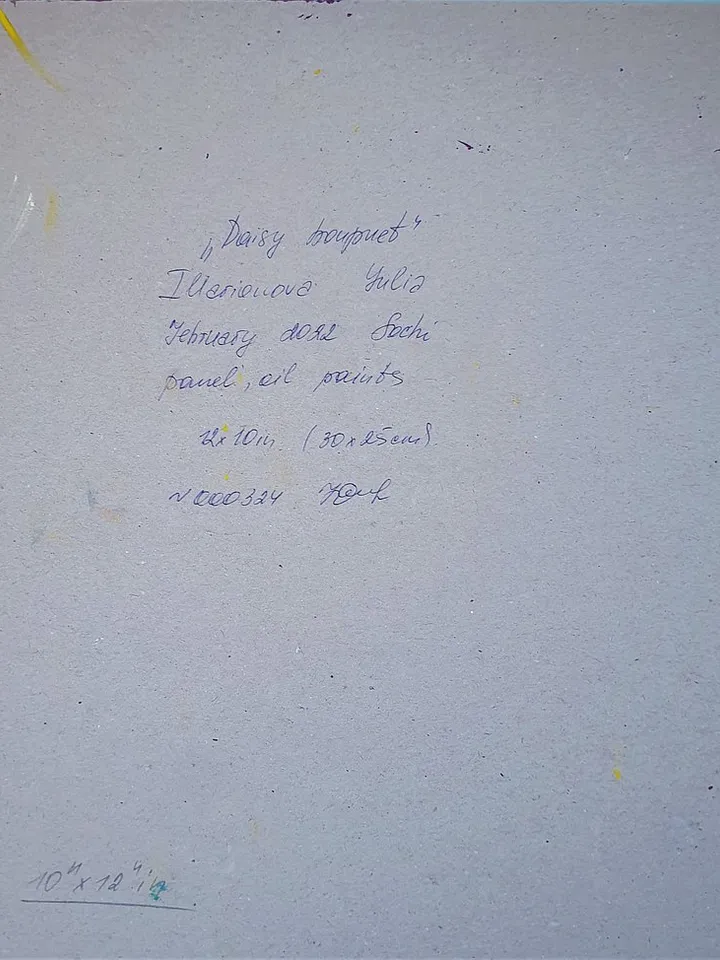 „Daisy bouquet"
Illarionova Yulia
February 2022 Sochi
panel, oil paints
12x10in (30x25cm)
N 000324
10"x12" in